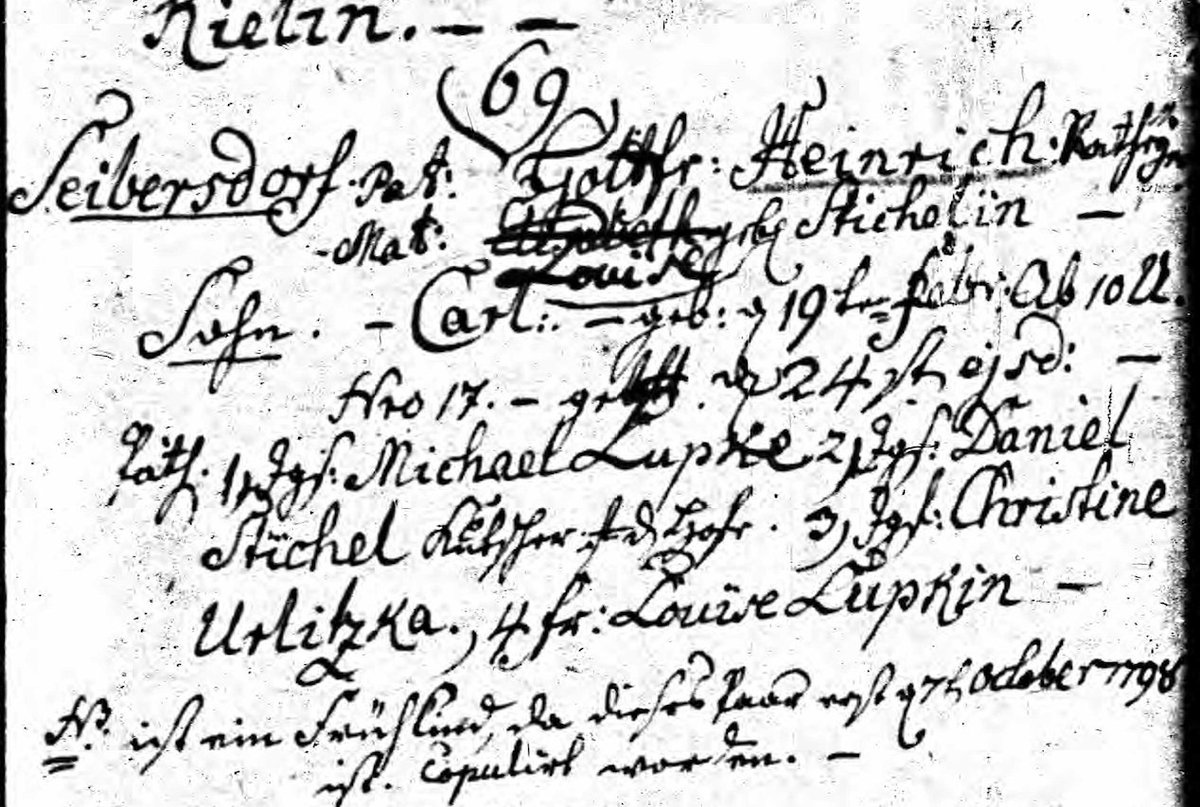 Rielin. – –
69
Seibersdorf. Pat: Gottfr: Heinrich.
- Mat: Elisabeth geb Stichelin –
Louise
Sohn. – Carl: – geb: d 19 ten Febr: Ab 10 U.
Nro 17. – get. d 24 st ejsd: –
Path. 1, Jgs: Michael Lupke 2, Jgs: Daniel
Stichel Kutscher 3, Jgf: Christine
Urlitzka., 4 fr: Louise Lupkin –
NB. ist ein Frühkind, da dieses Paar erst d 7 t October 1798
ist. Copulirt worden. –